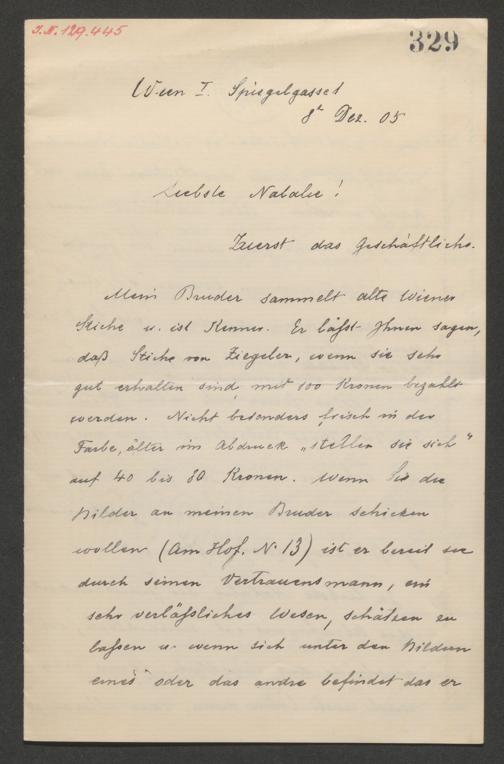 J.N. 129.445
329
Wien I. Spiegelgasse 1
8t Dez. 05
Liebste Natalie!
Zuerst das Geschäftliche.
Mein Bruder sammelt alte Wiener
Stiche u. ist Kenner. Er läßt Ihnen sagen,
daß Stiche von Ziegeler, wenn sie sehr
gut erhalten sind, mit 100 Kronen bezahlt
werden. Nicht besonders frisch in der
Farbe, älter im Abdruck „stellen sie sich"
auf 40 bis 80 Kronen. Wenn Sie die
Bilder an meinen Bruder schicken
wollen (Am Hof. N. 13) ist er bereit sie
durch seinen Vertrauensmann, ein
sehr verläßliches Wesen, schätzen zu
laßen u. wenn sich unter den Bildern
eines oder das andre befindet das er